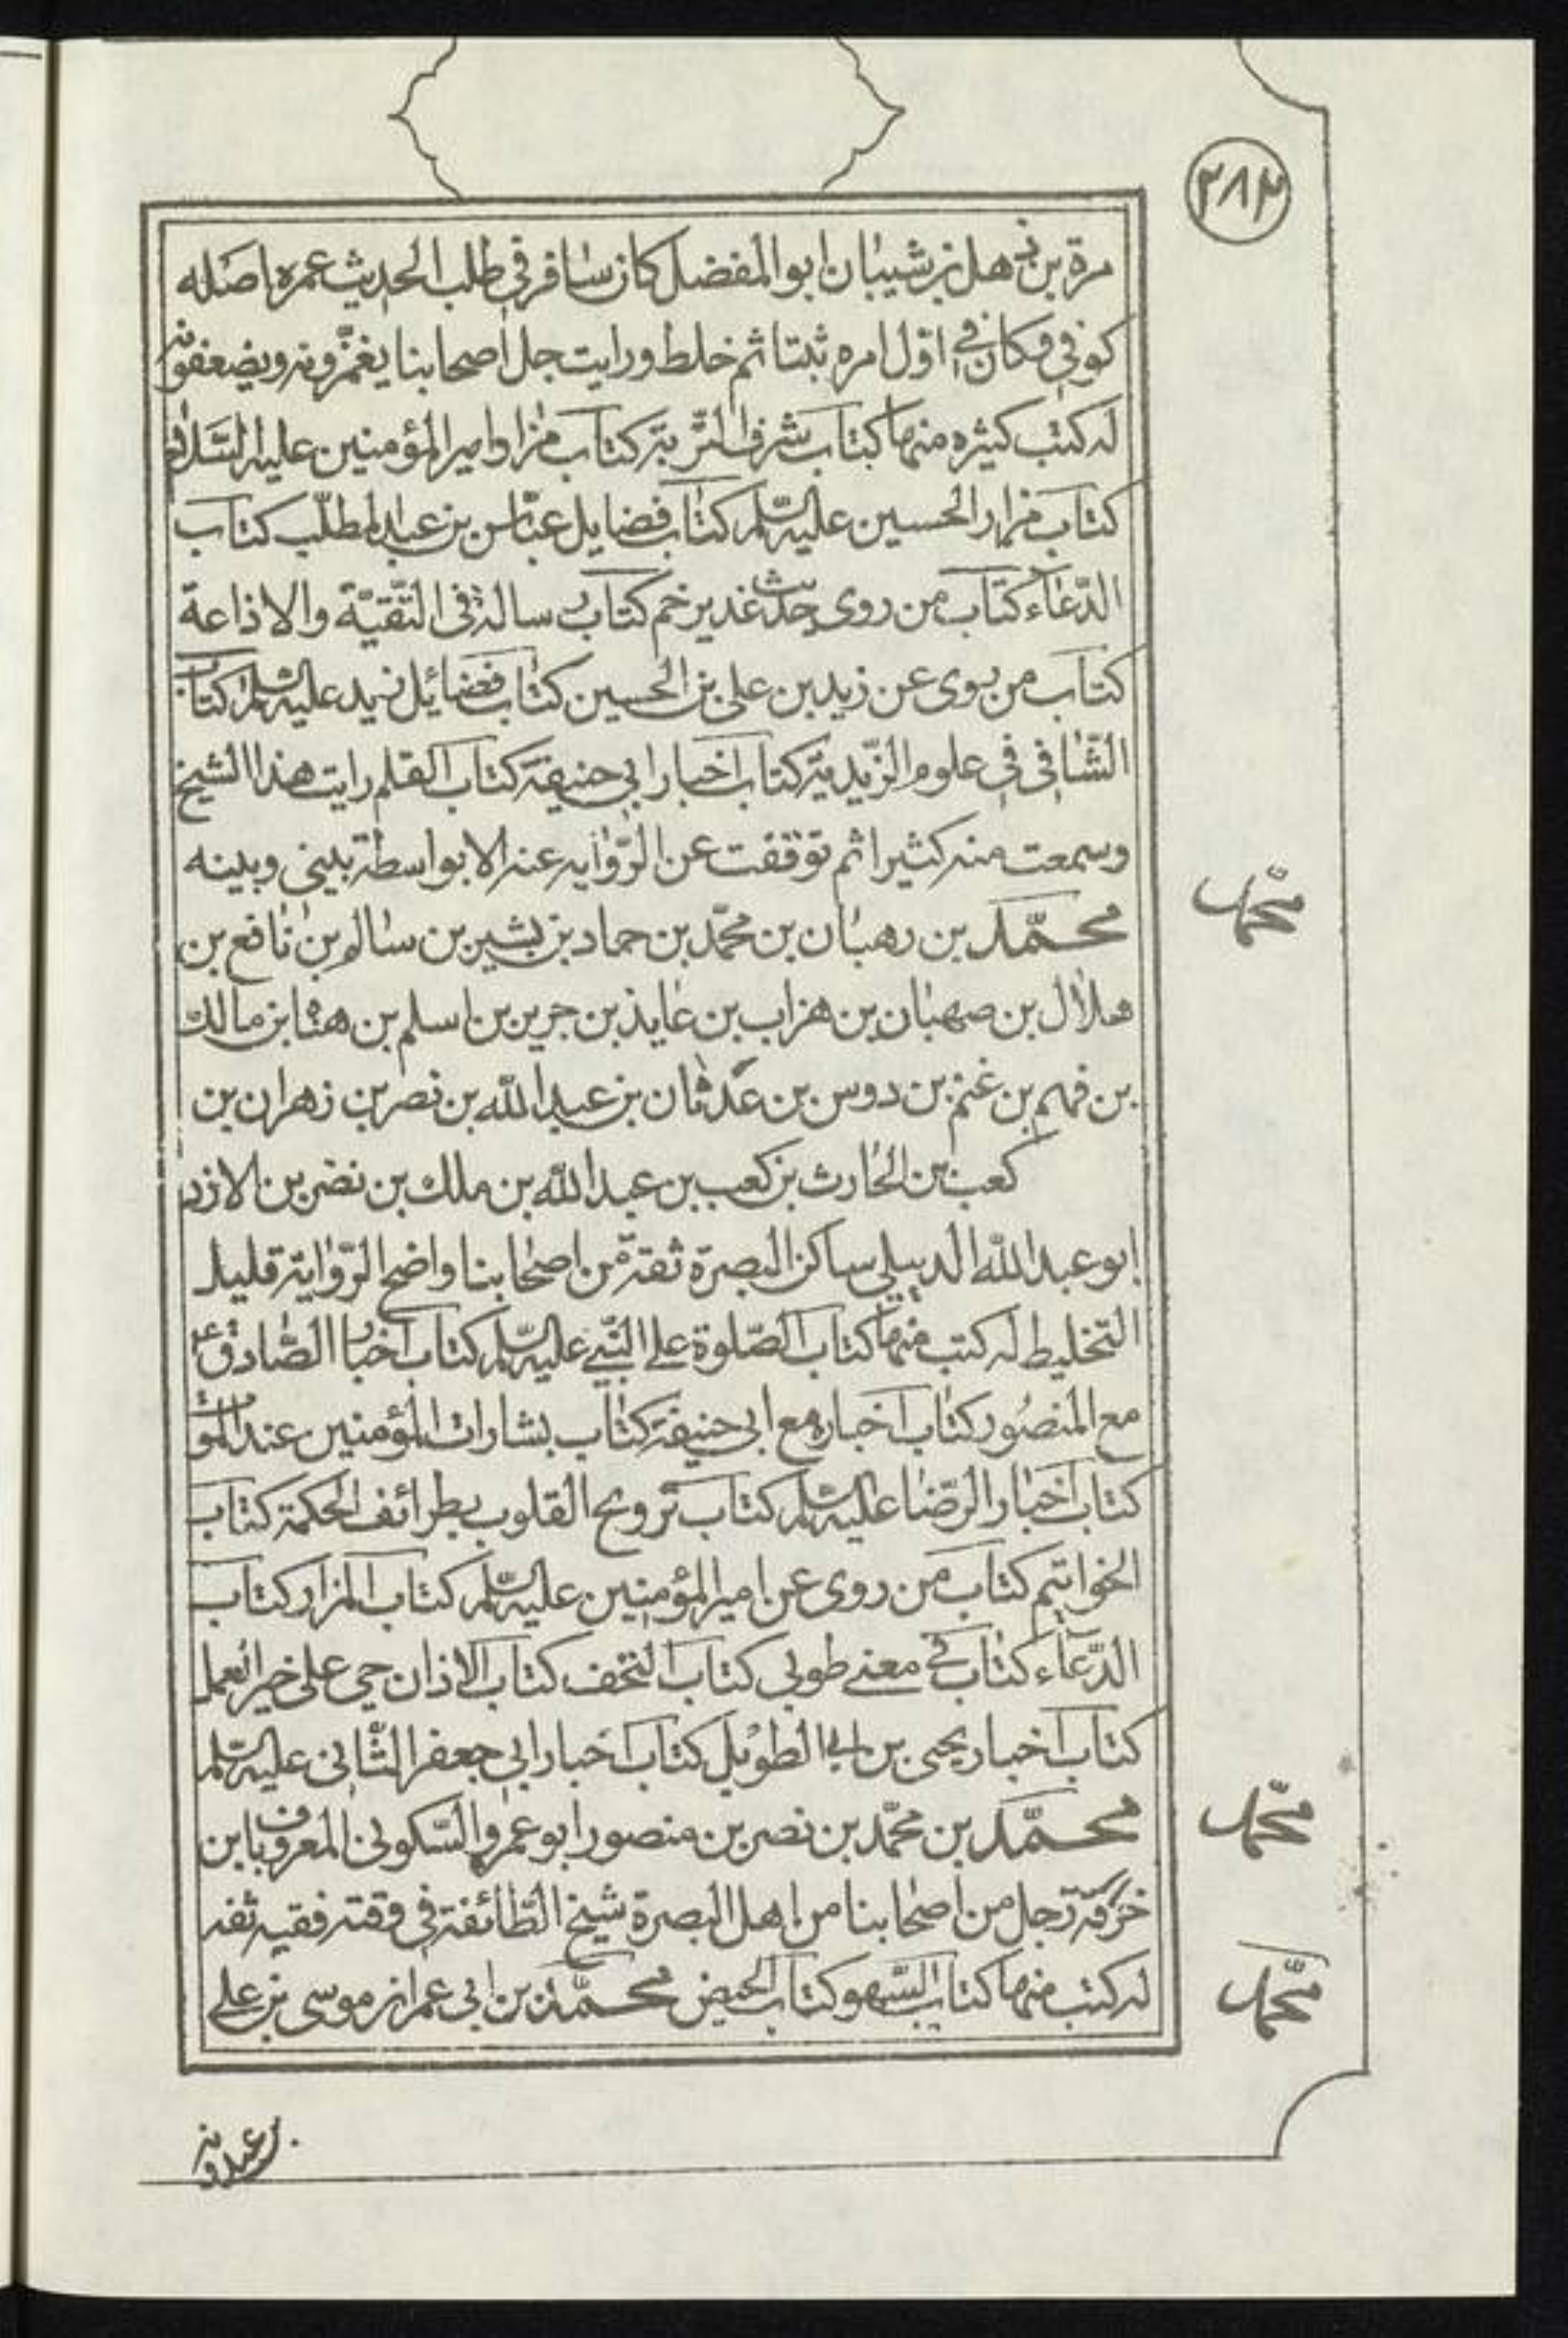 ٢٨٢
مرة بن ذهل بن شيبان ابوالمفضل كان سافر فى طلب الحديث عمره اصله
كوفي وكان في اول امره ثبتا ثم خلط ورايت جل اصحابنا يغمّزونه ويضعفونه
له كتب كثيره منها كتاب شرف التّربة كتاب مزار امير المؤمنين عليه السّلام
كتاب مزار الحسين عليه السّلم كتاب فضايل عبّاس بن عبد المطلّب كتاب
الدّعآء كتاب من روى حديث غدير خم كتاب رسالة فى التّقيّة والاذاعة
كتاب من روى عن زيد بن على بن الحسين كتاب فضائل زيد عليه السّلم كتاب
الشّافى فى علوم الزّيدية كتاب اخبار ابي حنيفة كتاب القلم رايت هذا الشيخ
وسمعت منه كثيرا ثم توقفت عن الرّوايه عنه الا بواسطة بيني وبينه
محمّد بن رهبان بن محمّد بن حماد بن بشير بن سالم بن نافع بن
محمّد
هلال بن صهبان بن هراب بن عايذ بن جرير بن اسلم بن هناه بن مالك
بن فهم بن غنم بن دوس بن عدثان بن عبد الله بن نصر بن زهران بن
كعب بن الحارث بن كعب بن عبد الله بن ملك بن نضر بن الازد
ابو عبد الله الدبيلي ساكن البصرة ثقة من اصحابنا واضح الرّواية قليل
التخليط له كتب منها كتاب الصّلوة على النّبي عليه السّلم كتاب اخبار الصّادق ع
مع المنصور كتاب اخباره مع ابى حنيفة كتاب بشارات المؤمنين عند الموت
كتاب اخبار الرّضا عليه السّلم كتاب ترويح القلوب بطرائف الحكمة كتاب
الخواتيم كتاب من روى عن امير المؤمنين عليه السّلم كتاب المزار كتاب
الدّعآء كتاب في معنى طوبى كتاب التحف كتاب الاذان حي على خير العمل
كتاب اخبار يحيى بن ابي الطويل كتاب اخبار ابي جعفر الثّانى عليه السّلم
محمّد بن محمّد بن نصر بن منصور ابو عمرو السّكونى المعروف بابن
محمّد
خرقة رجل من اصحابنا من اهل البصرة شيخ الطّائفة في وقته فقيه ثقه
له كتب منها كتاب السّهو كتاب الحيض محمّد بن ابى عمران موسى بن على
محمّد
بن عبدويه